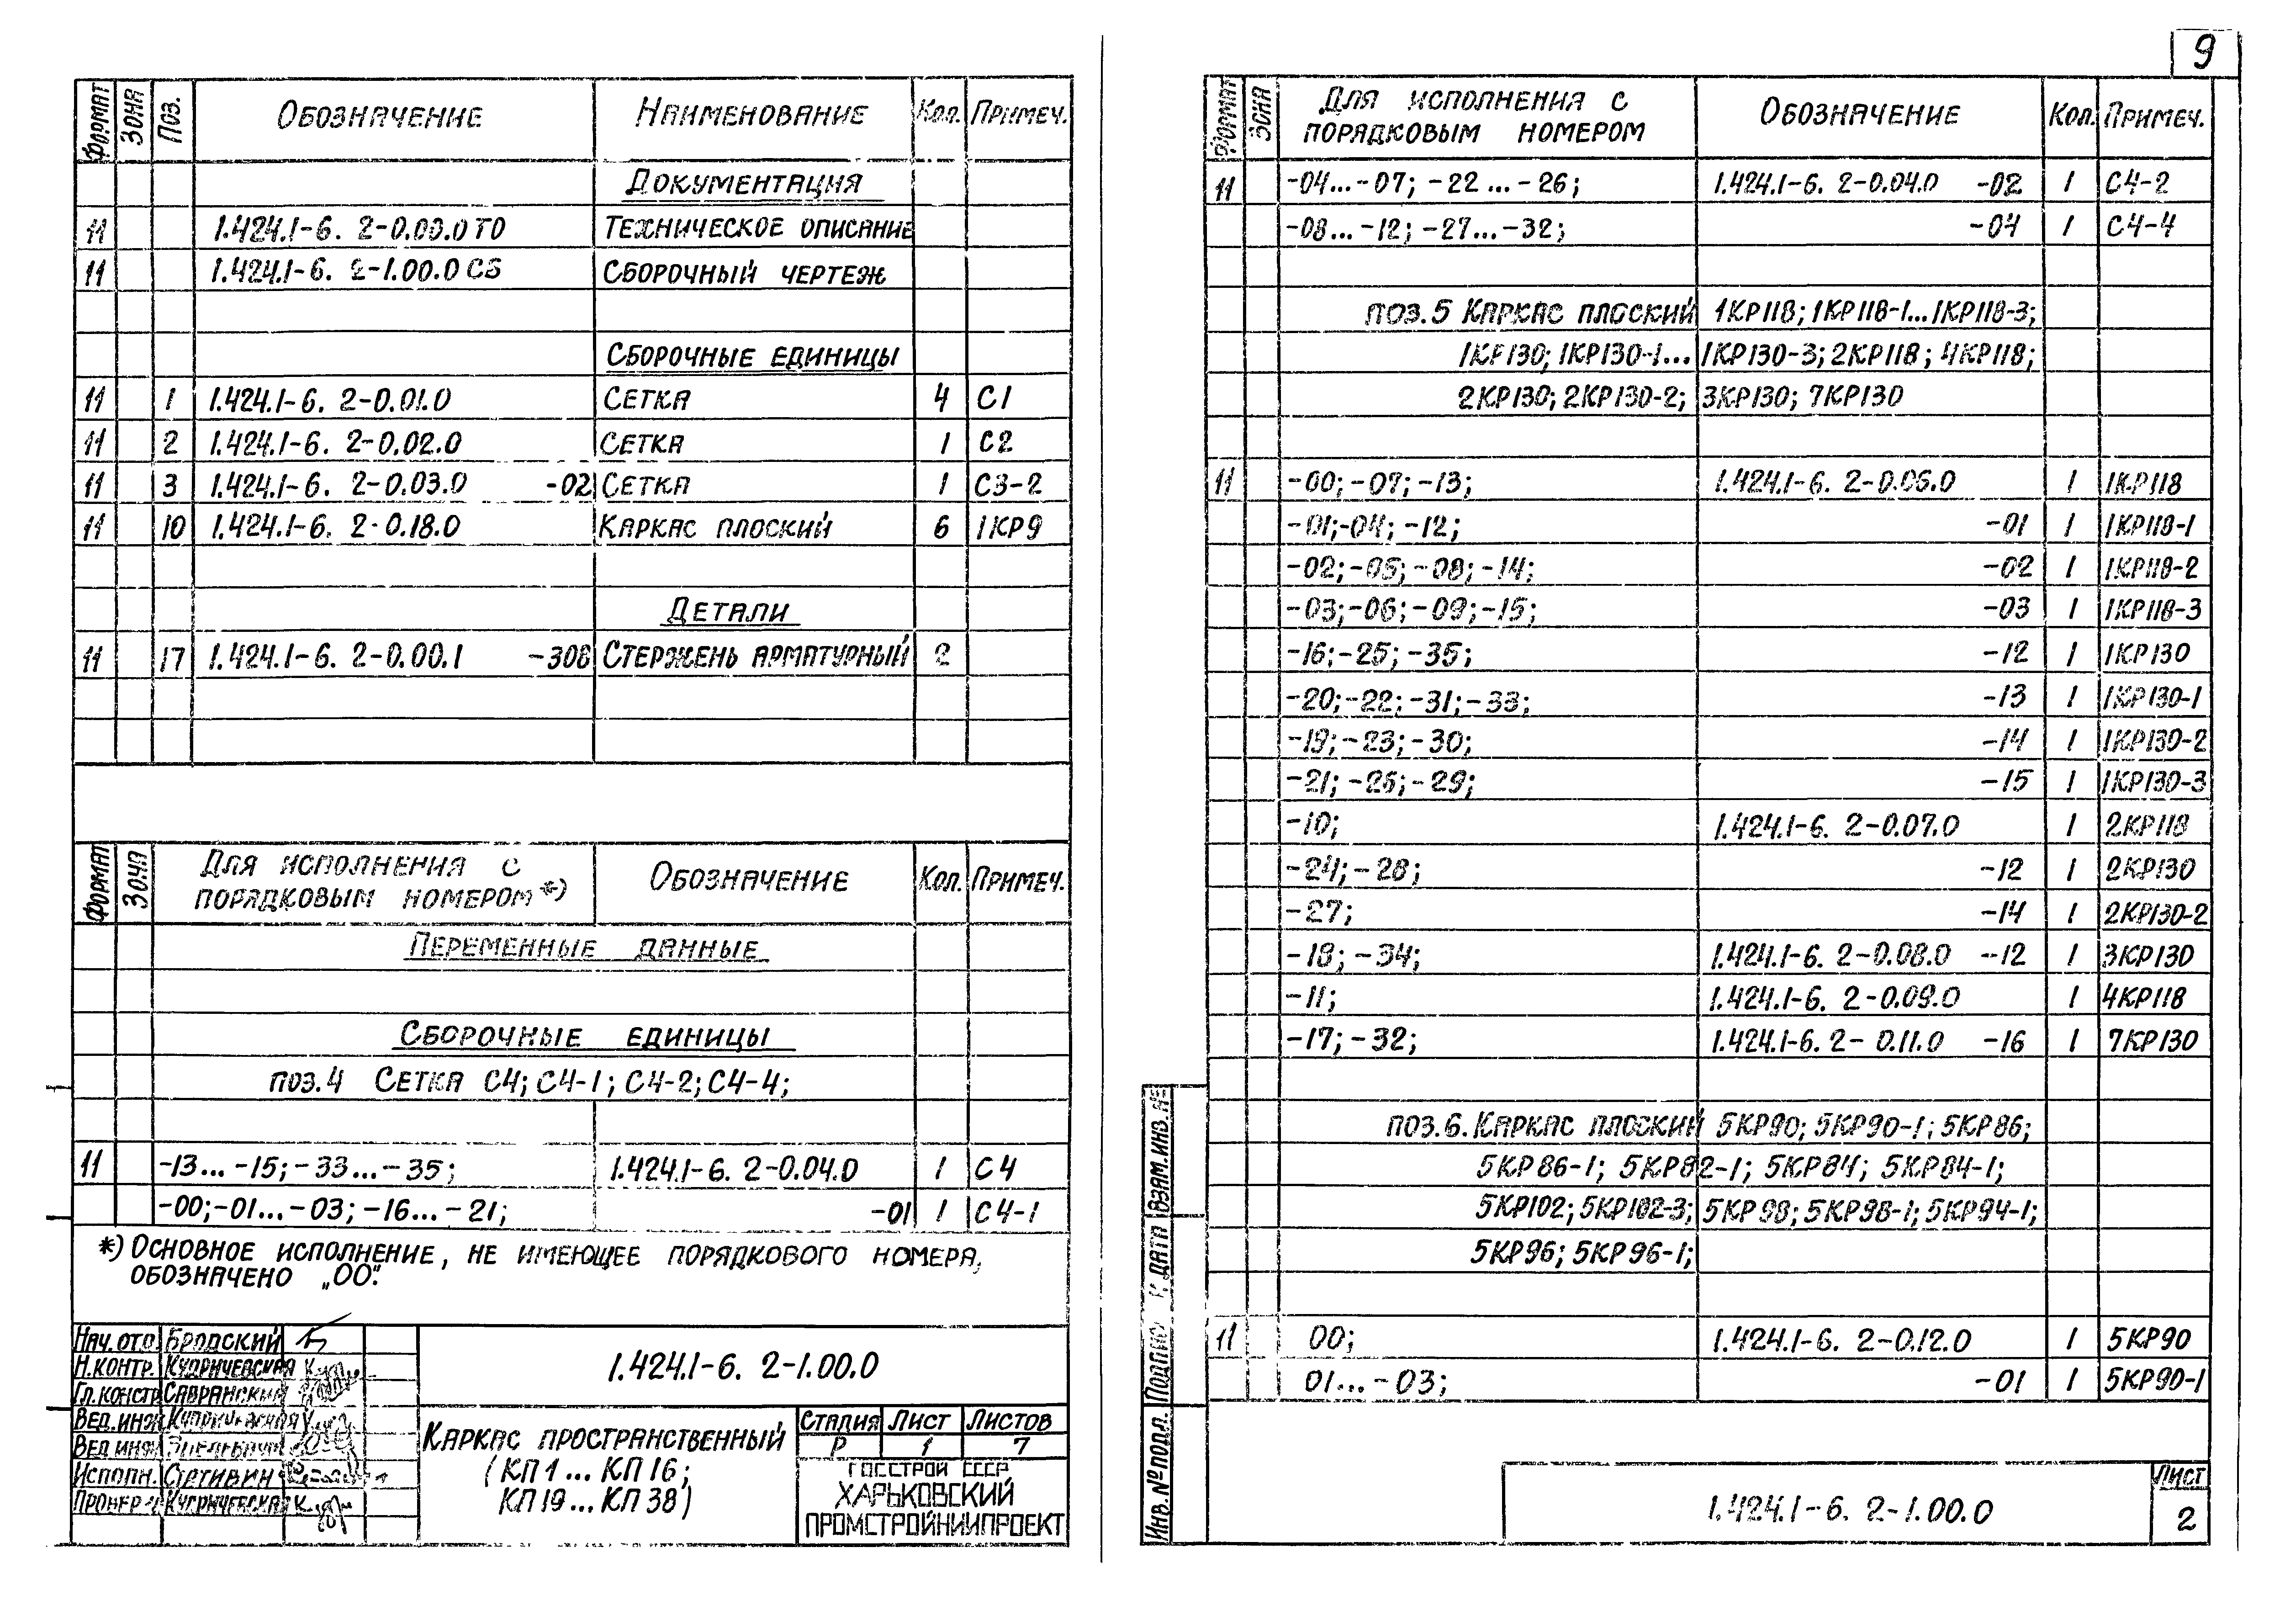 9
Формат Зона Поз. Обозначение Наименование Кол. Примеч.
Документация
11 1.424.1-6. 2-0.00.0 ТО Техническое описание
11 1.424.1-6. 2-1.00.0 СБ Сборочный чертеж
Сборочные единицы
11 1 1.424.1-6. 2-0.01.0 Сетка 4 С1
11 2 1.424.1-6. 2-0.02.0 Сетка 1 С2
11 3 1.424.1-6. 2-0.03.0 -02 Сетка 1 С3-2
11 10 1.424.1-6. 2-0.18.0 Каркас плоский 6 1КР9
Детали
11 17 1.424.1-6. 2-0.00.1 -308 Стержень арматурный 2
Формат Зона Для исполнения с порядковым номером *) Обозначение Кол. Примеч.
Переменные данные
Сборочные единицы
поз.4 Сетка С4; С4-1; С4-2; С4-4;
11 -13...-15; -33...-35; 1.424.1-6. 2-0.04.0 1 С4
-00; -01...-03; -16...-21; -01 1 С4-1
*) Основное исполнение, не имеющее порядкового номера,
обозначено „00".
Нач. отд. Бродский
Н.контр. Кудричевская
Гл.констр. Савранский
Вед.инж.
Вед.инж.
Исполн.
Провер. Кудричевская
1.424.1-6. 2-1.00.0
Каркас пространственный
(КП1...КП16;
КП19...КП38)
Стадия Лист Листов
Р 1 7
Госстрой СССР
Харьковский
Промстройниипроект
Формат Зона Для исполнения с порядковым номером Обозначение Кол. Примеч.
11 -04...-07; -22...-26; 1.424.1-6. 2-0.04.0 -02 1 С4-2
-08...-12; -27...-32; -04 1 С4-4
поз.5 Каркас плоский 1КР118; 1КР118-1...1КР118-3;
1КР130; 1КР130-1...1КР130-3; 2КР118; 4КР118;
2КР130; 2КР130-2; 3КР130; 7КР130
11 -00; -07; -13; 1.424.1-6. 2-0.06.0 1 1КР118
-01; -04; -12; -01 1 1КР118-1
-02; -05; -08; -14; -02 1 1КР118-2
-03; -06; -09; -15; -03 1 1КР118-3
-16; -25; -35; -12 1 1КР130
-20; -22; -31; -33; -13 1 1КР130-1
-19; -23; -30; -14 1 1КР130-2
-21; -26; -29; -15 1 1КР130-3
-10; 1.424.1-6. 2-0.07.0 1 2КР118
-24; -28; -12 1 2КР130
-27; -14 1 2КР130-2
-18; -34; 1.424.1-6. 2-0.08.0 -12 1 3КР130
-11; 1.424.1-6. 2-0.09.0 1 4КР118
-17; -32; 1.424.1-6. 2-0.11.0 -16 1 7КР130
поз.6. Каркас плоский 5КР90; 5КР90-1; 5КР86;
5КР86-1; 5КР82-1; 5КР84; 5КР84-1;
5КР102; 5КР102-3; 5КР98; 5КР98-1; 5КР94-1;
5КР96; 5КР96-1;
11 00; 1.424.1-6. 2-0.12.0 1 5КР90
01...-03; -01 1 5КР90-1
Инв.№ подл. Подпись и дата Взам.инв.№
1.424.1-6. 2-1.00.0
Лист
2